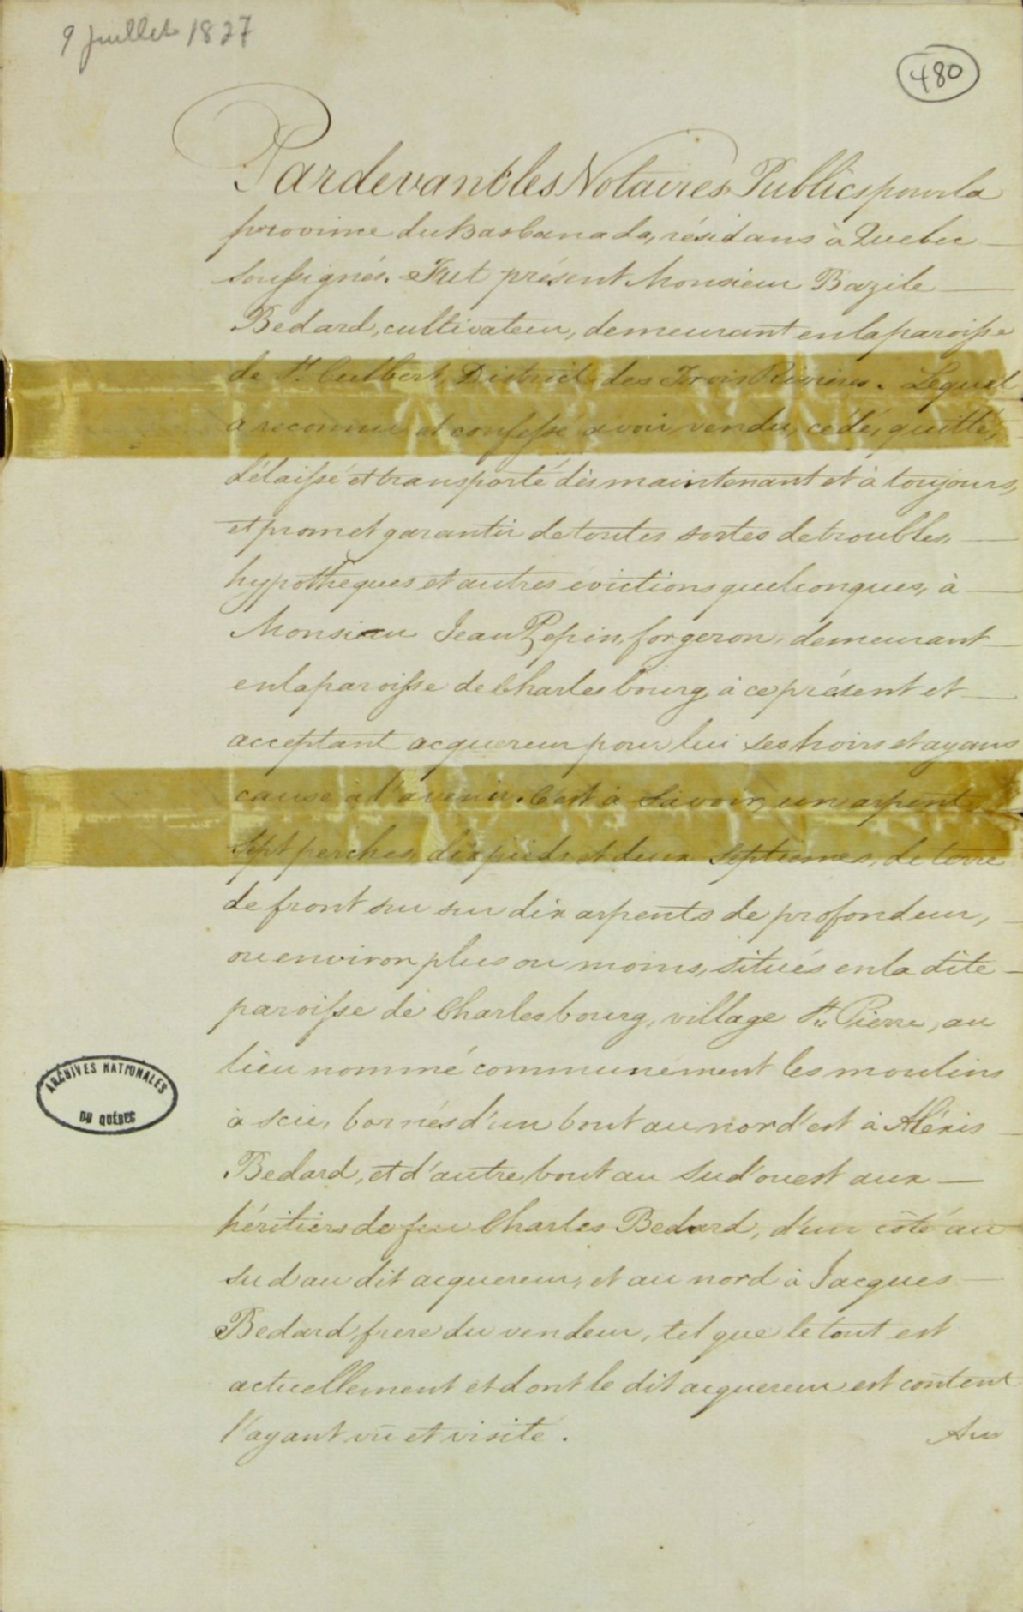 9 juillet 1827
480
Pardevant les Notaires Publics pour la
province du Bas Canada, résidans à Quebec
soussignés. Fut présent Monsieur Bazile
Bedard, cultivateur, demeurant en la paroisse
de St. Cutbert, District des Trois Rivières. Lequel
a reconnu et confessé avoir vendu, cédé, quitté,
délaissé et transporté dès maintenant et à toujours,
et promet garantir de toutes sortes de troubles,
hypotheques et autres évictions quelconques, à
Monsieur Jean Pepin, forgeron, demeurant
en la paroisse de Charlesbourg, à ce présent et
acceptant acquereur pour lui ses hoirs et ayans
cause à l'avenir. C'est à savoir, un arpent
sept perches, dix pieds et deux septiemes, de terre
de front sur sur dix arpents de profondeur,
ou environ plus ou moins, situés en la dite
paroisse de Charlesbourg, village St. Pierre, au
lieu nommé communément les moulins
à scie, bornés d'un bout au nord'est à Aléxis
Bedard, et d'autre bout au sud'ouest aux
héritiers de feu Charles Bedard, d'un côté au
sud au dit acquereur, et au nord à Jacques
Bedard, frere du vendeur, tel que le tout est
actuellement et dont le dit acquereur est content
l'ayant vû et visité.
Au
ARCHIVES NATIONALES
DU QUÉBEC